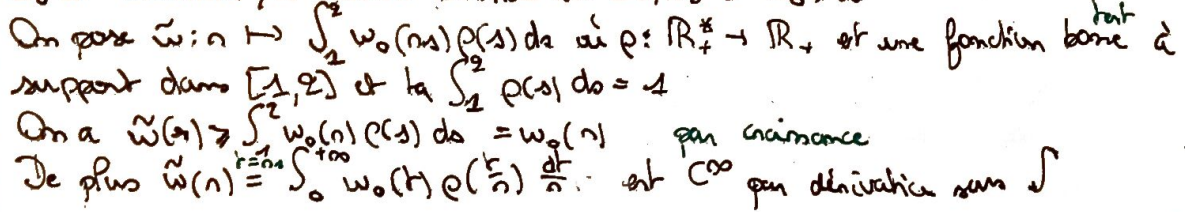 On pose w̃ : r ↦ ∫_1^2 w_0(rs) ρ(s) ds où ρ : ℝ_+^* → ℝ_+ est une fonction test à
support dans [1,2] et tq ∫_1^2 ρ(s) ds = 1
On a w̃(r) ≥ ∫_1^2 w_0(r) ρ(s) ds = w_0(r) par croissance
De plus w̃(r) =^{t=rs} ∫_0^{+∞} w_0(t) ρ(t/r) dt/r est C^∞ par dérivation sous ∫